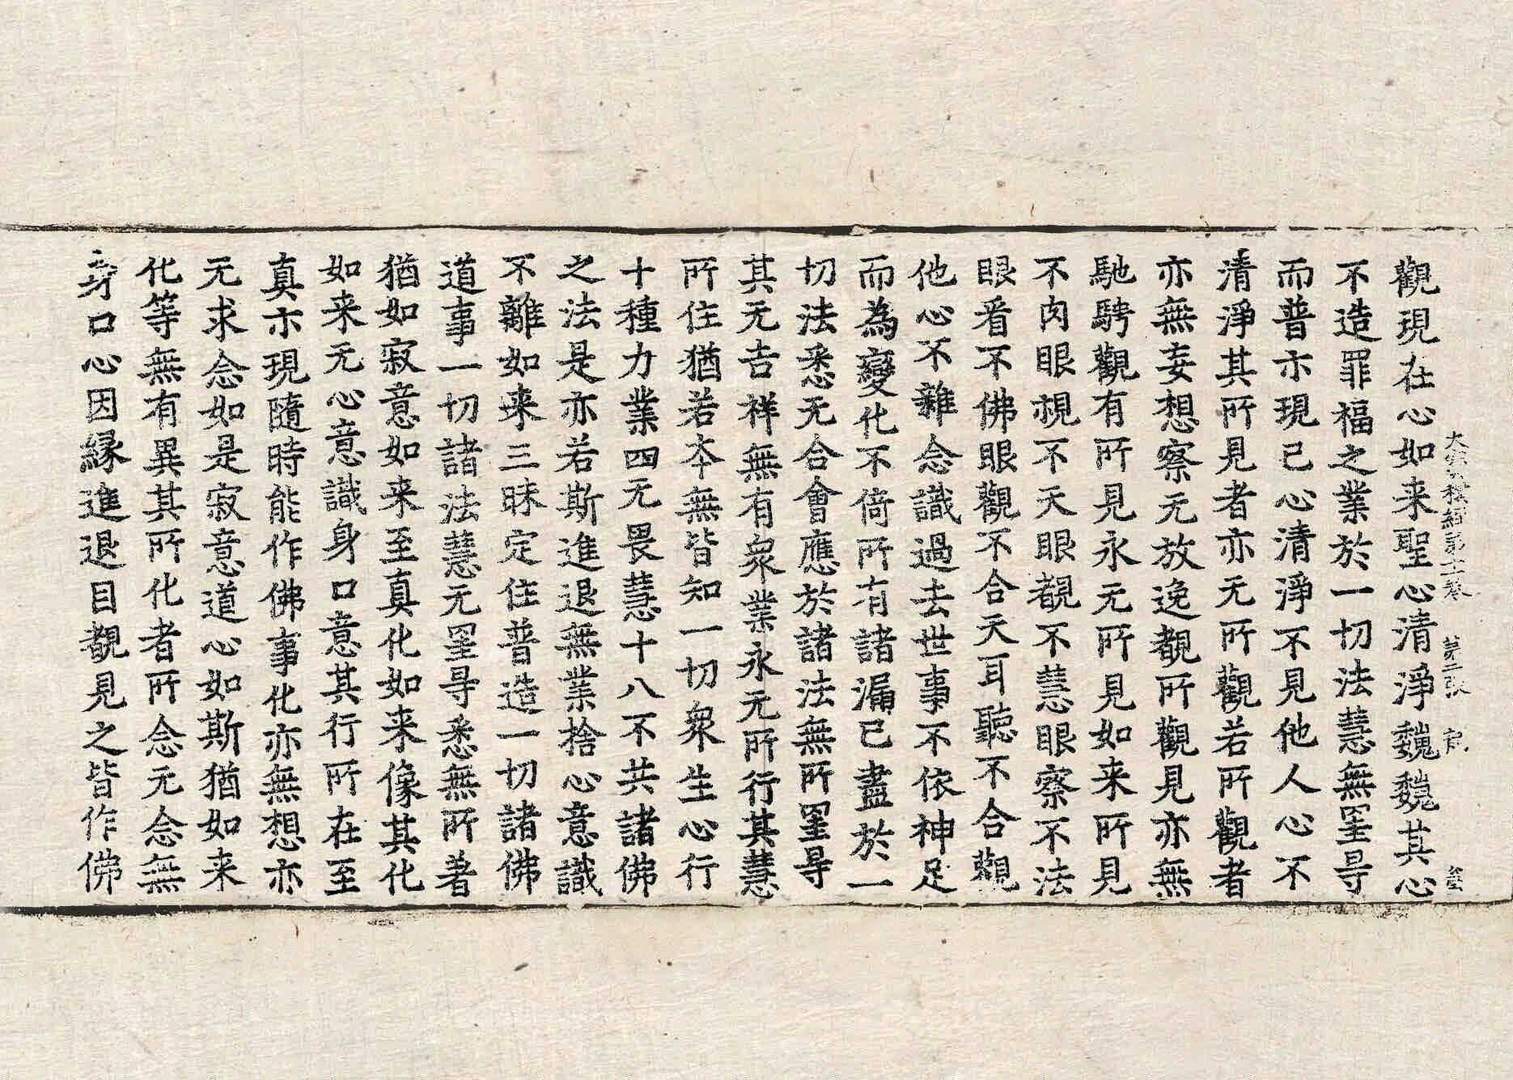 觀現在心如来聖心清淨巍巍其心
大寶積經第十卷 第二張 官
不造罪福之業於一切法慧無罣㝵
而普亦現已心清淨不見他人心不
清淨其所見者亦无所觀若所觀者
亦無妄想察无放逸覩所觀見亦無
馳騁觀有所見永元所見如来所見
不肉眼視不天眼覩不慧眼察不法
眼看不佛眼觀不合天耳聽不合觀
他心不離念識過去世事不依神足
而為變化不倚所有諸漏已盡於一
切法悉无合會應於諸法無所罣㝵
其无吉祥無有衆業永元所行其慧
所住猶若夲無皆知一切衆生心行
十種力業四无畏慧十八不共諸佛
之法是亦若斯進退無業捨心意識
不離如来三昧定住普造一切諸佛
道事一切諸法慧无罣㝵悉無所著
猶如寂意如来至真化如来像其化
如来无心意識身口意其行所在至
真亦現隨時能作佛事化亦無想亦
无求念如是寂意道心如斯猶如来
化等無有異其所化者所念元念無
身口心因縁進退目覩見之皆作佛